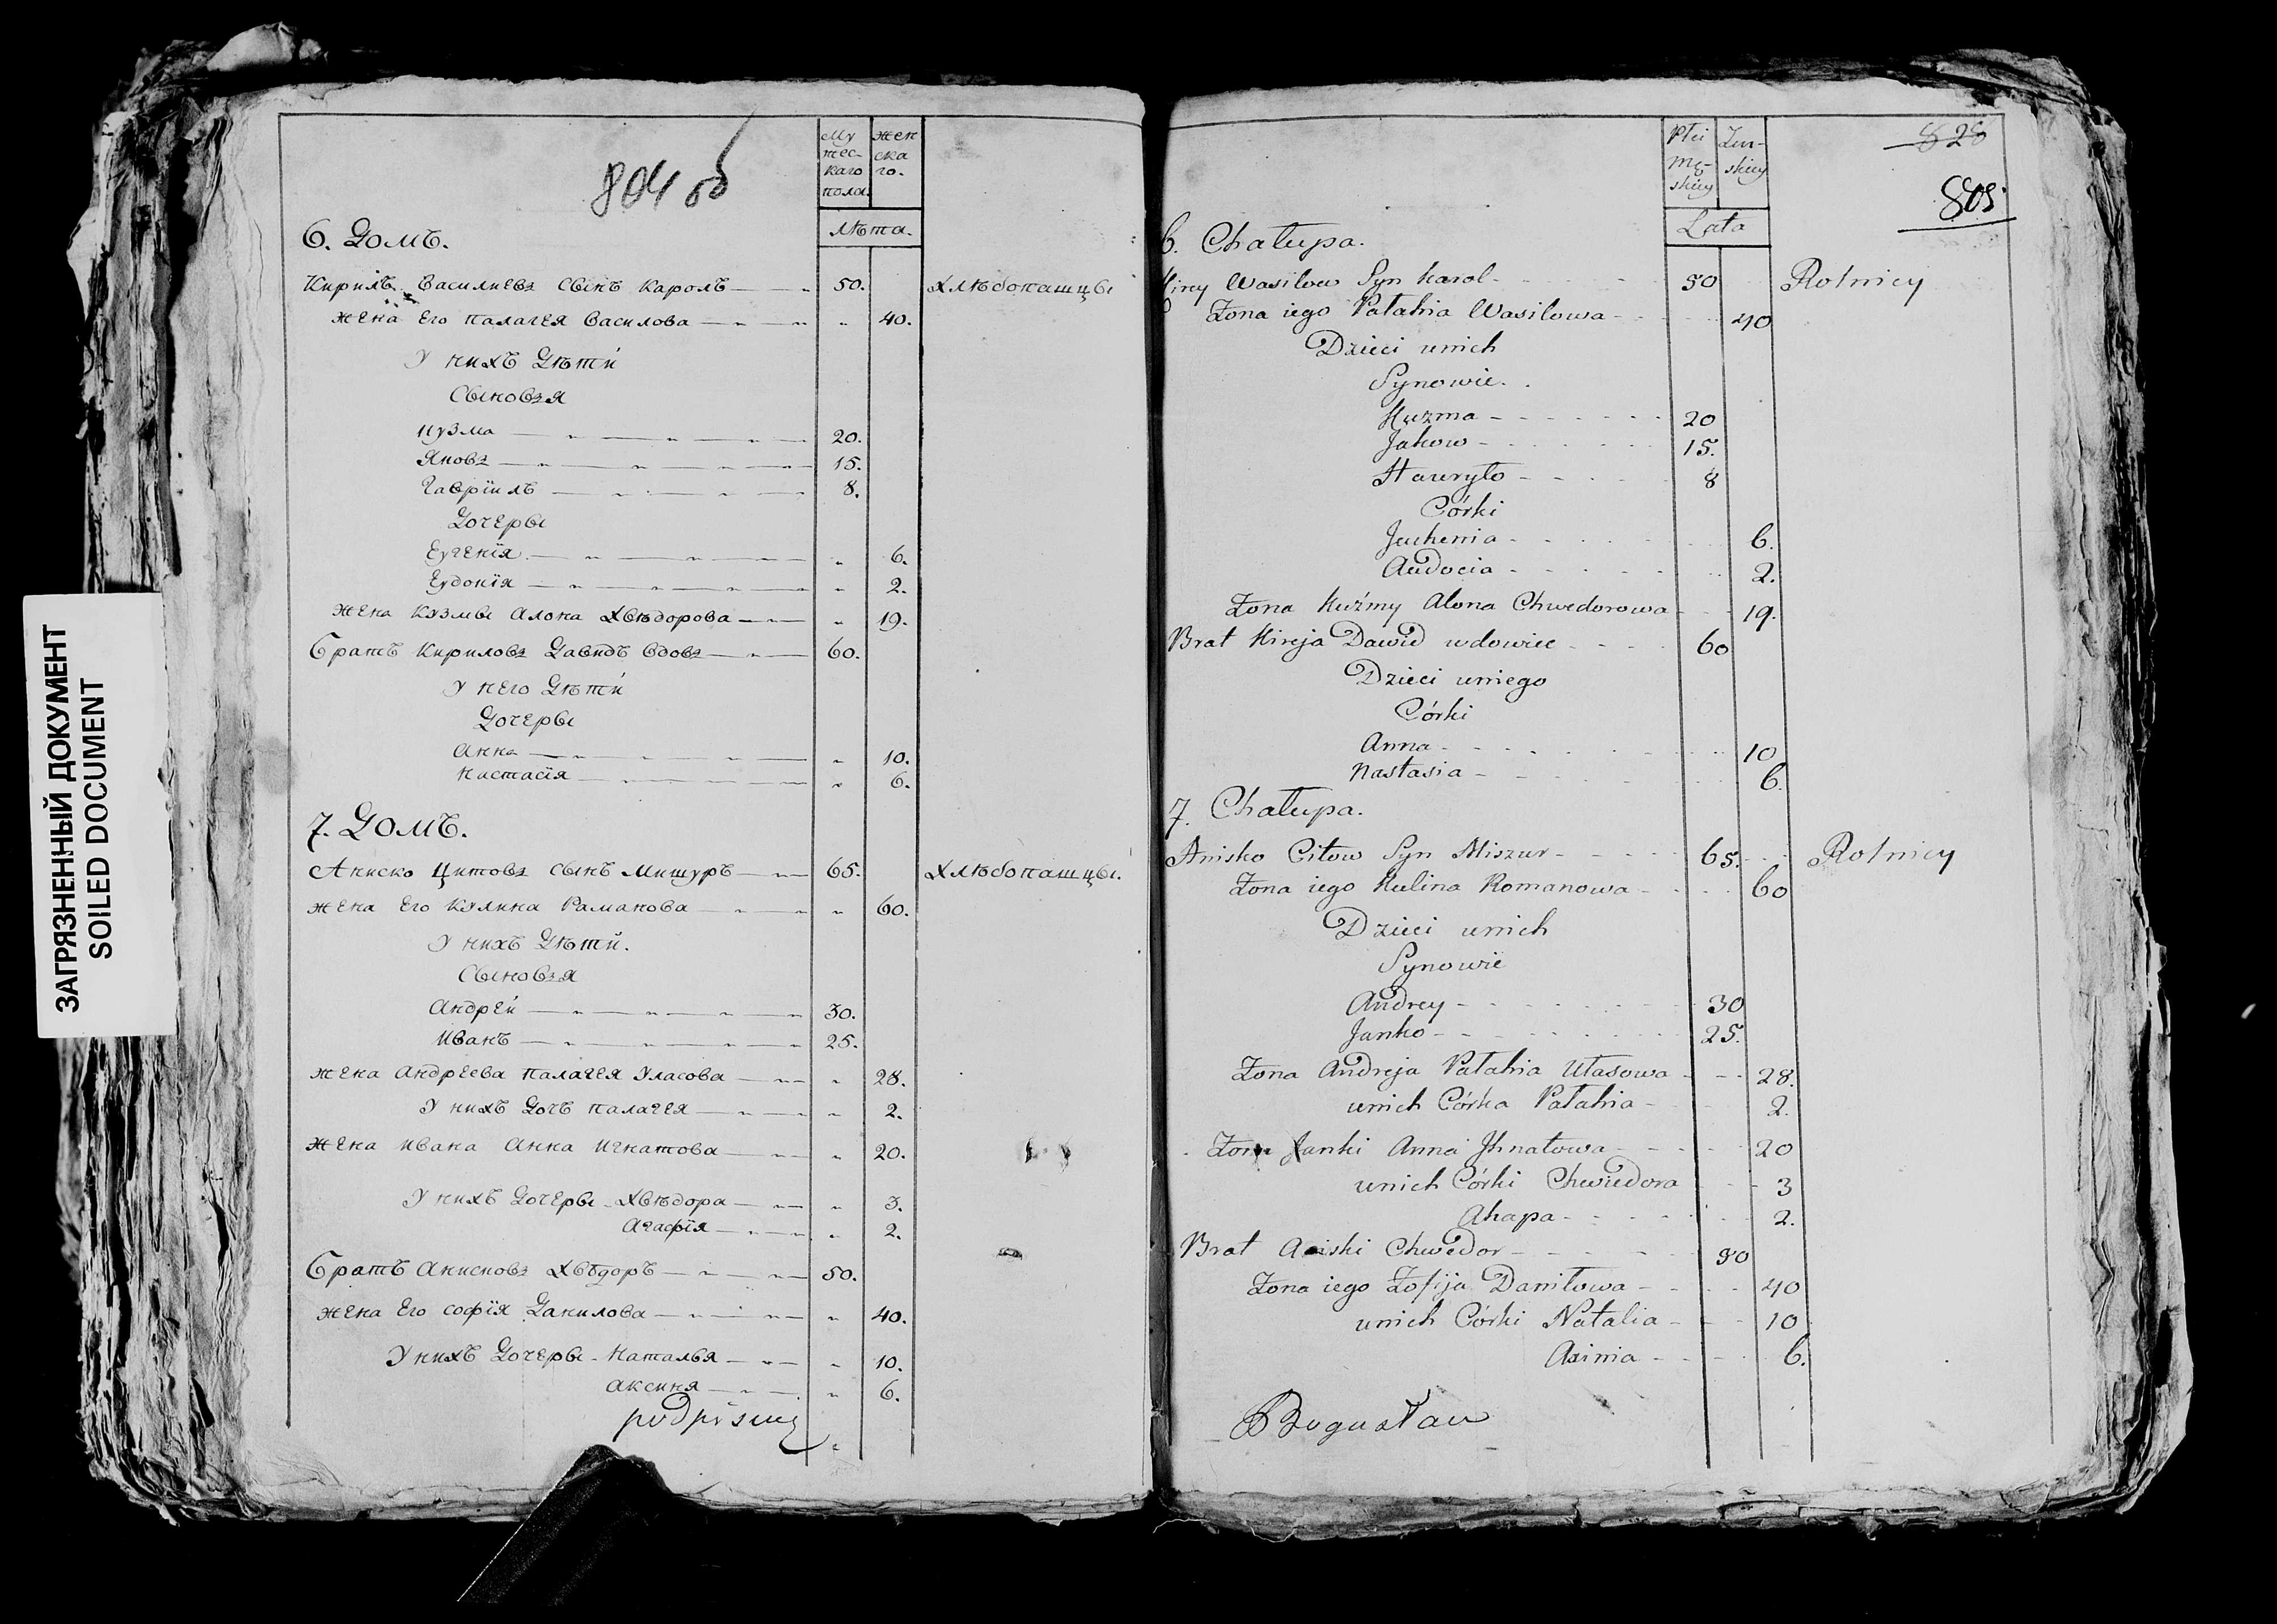 ЗАГРЯЗНЕННЫЙ ДОКУМЕНТ
SOILED DOCUMENT
804 об
Му жес- каго пола.
жен ска го.
лѣта.
6. Домъ.
Кирилъ Василиевъ сынъ Король 50. хлѣбопашцы
жена Его Палагея Василова " 40.
У нихъ Дѣти
Сыновья
Кузма 20.
Яковъ 15.
Гаврїилъ 8.
Дочеры
Еугенїя " 6.
Еудокїя " 2.
жена Кузмы Алона Хвѣдорова " 19.
Братъ Кириловъ Давидъ вдовъ 60.
У него Дѣти
Дочеры
Анна " 10.
Настасїя " 6.
7. Домъ.
Аниско Цитовъ сынъ Мишуръ 65. хлѣбопашцы.
жена Его Кулина Раманова " 60.
У нихъ Дѣти.
Сыновья
Андрей 30.
Иванъ 25.
жена Андреева Палагея Уласова " 28.
У нихъ Дочъ Палагея " 2.
жена Ивана Анна Игнатова " 20.
У нихъ Дочеры Хвѣдора " 3.
Агафїя " 2.
Братъ Анисковъ Хвѣдоръ 50.
жена Его Софїя Данилова " 40.
У нихъ Дочеры Наталья " 10.
Аксиня " 6.
podpisuię
828
805
Płci Mę- skiey
Żen- skiey
Lata
6. Chałupa.
Kirey Wasilow Syn Karol 50 Rolnicy
Żona iego Pałahia Wasilowa 40
Dzieci unich
Synowie.
Kuźma 20
Jakow 15.
Hawryło 8
Córki
Jauhenia 6.
Audocia 2.
Żona Kuźmy Alona Chwedorowa 19.
Brat Kireja Dawid wdowiec 60
Dzieci uniego
Córki
Anna 10
Nastasia 6.
7. Chałupa.
Anisko Citow Syn Miszur 65. Rolnicy
Żona iego Kulina Romanowa 60
Dzieci unich
Synowie
Andrey 30
Janko 25.
Żona Andreja Pałahia Ułasowa 28.
unich Córka Pałahia 2.
Żona Janki Anna Jhnatowa 20
unich Córki Chwiedora 3
Ahapa 2.
Brat Aniski Chwedor 50
Żona iego Zofija Daniłowa 40
unich Córki Natalia 10
Axinia 6.
Bogusław